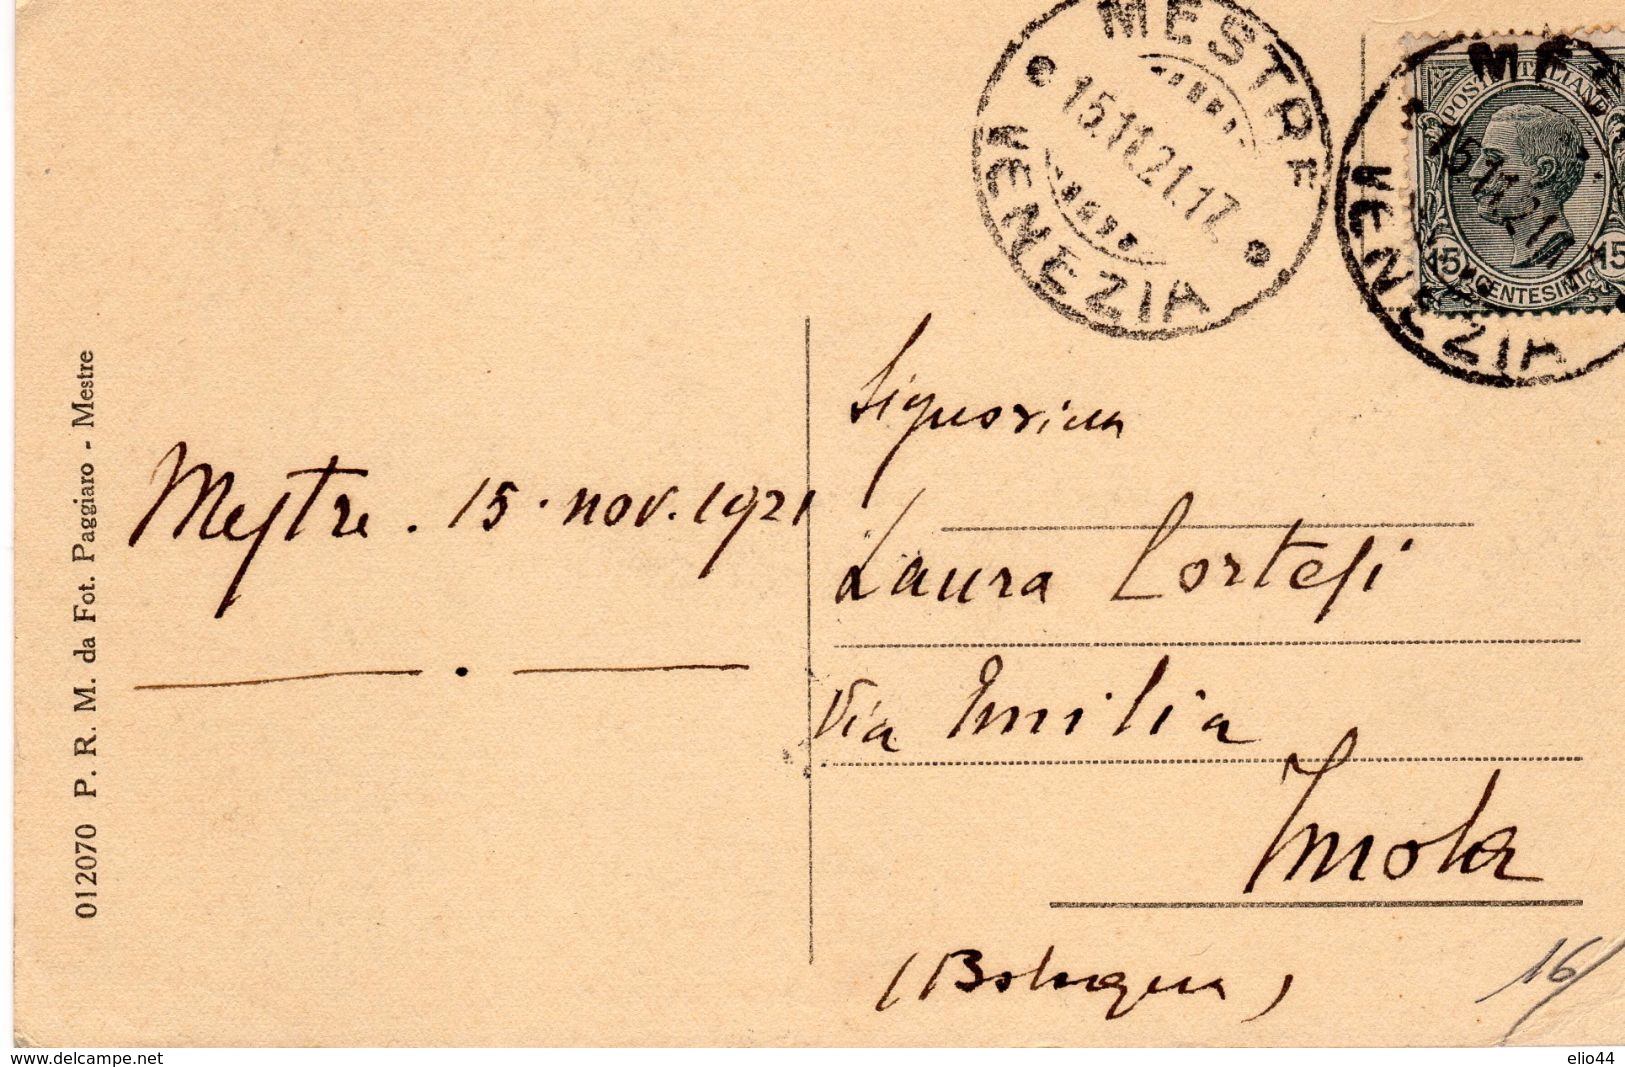 MESTRE
15.11.21.17.
VENEZIA
MES
15.11.21.17
VENEZIA
POSTE ITALIANE
15
15
CENTESIMI
Mestre. 15. nov. 1921
Signorina
Laura Cortesi
Via Emilia
Imola
(Bologna)
16/
012070 P. R. M. da Fot. Paggiaro - Mestre
www.delcampe.net
elio44